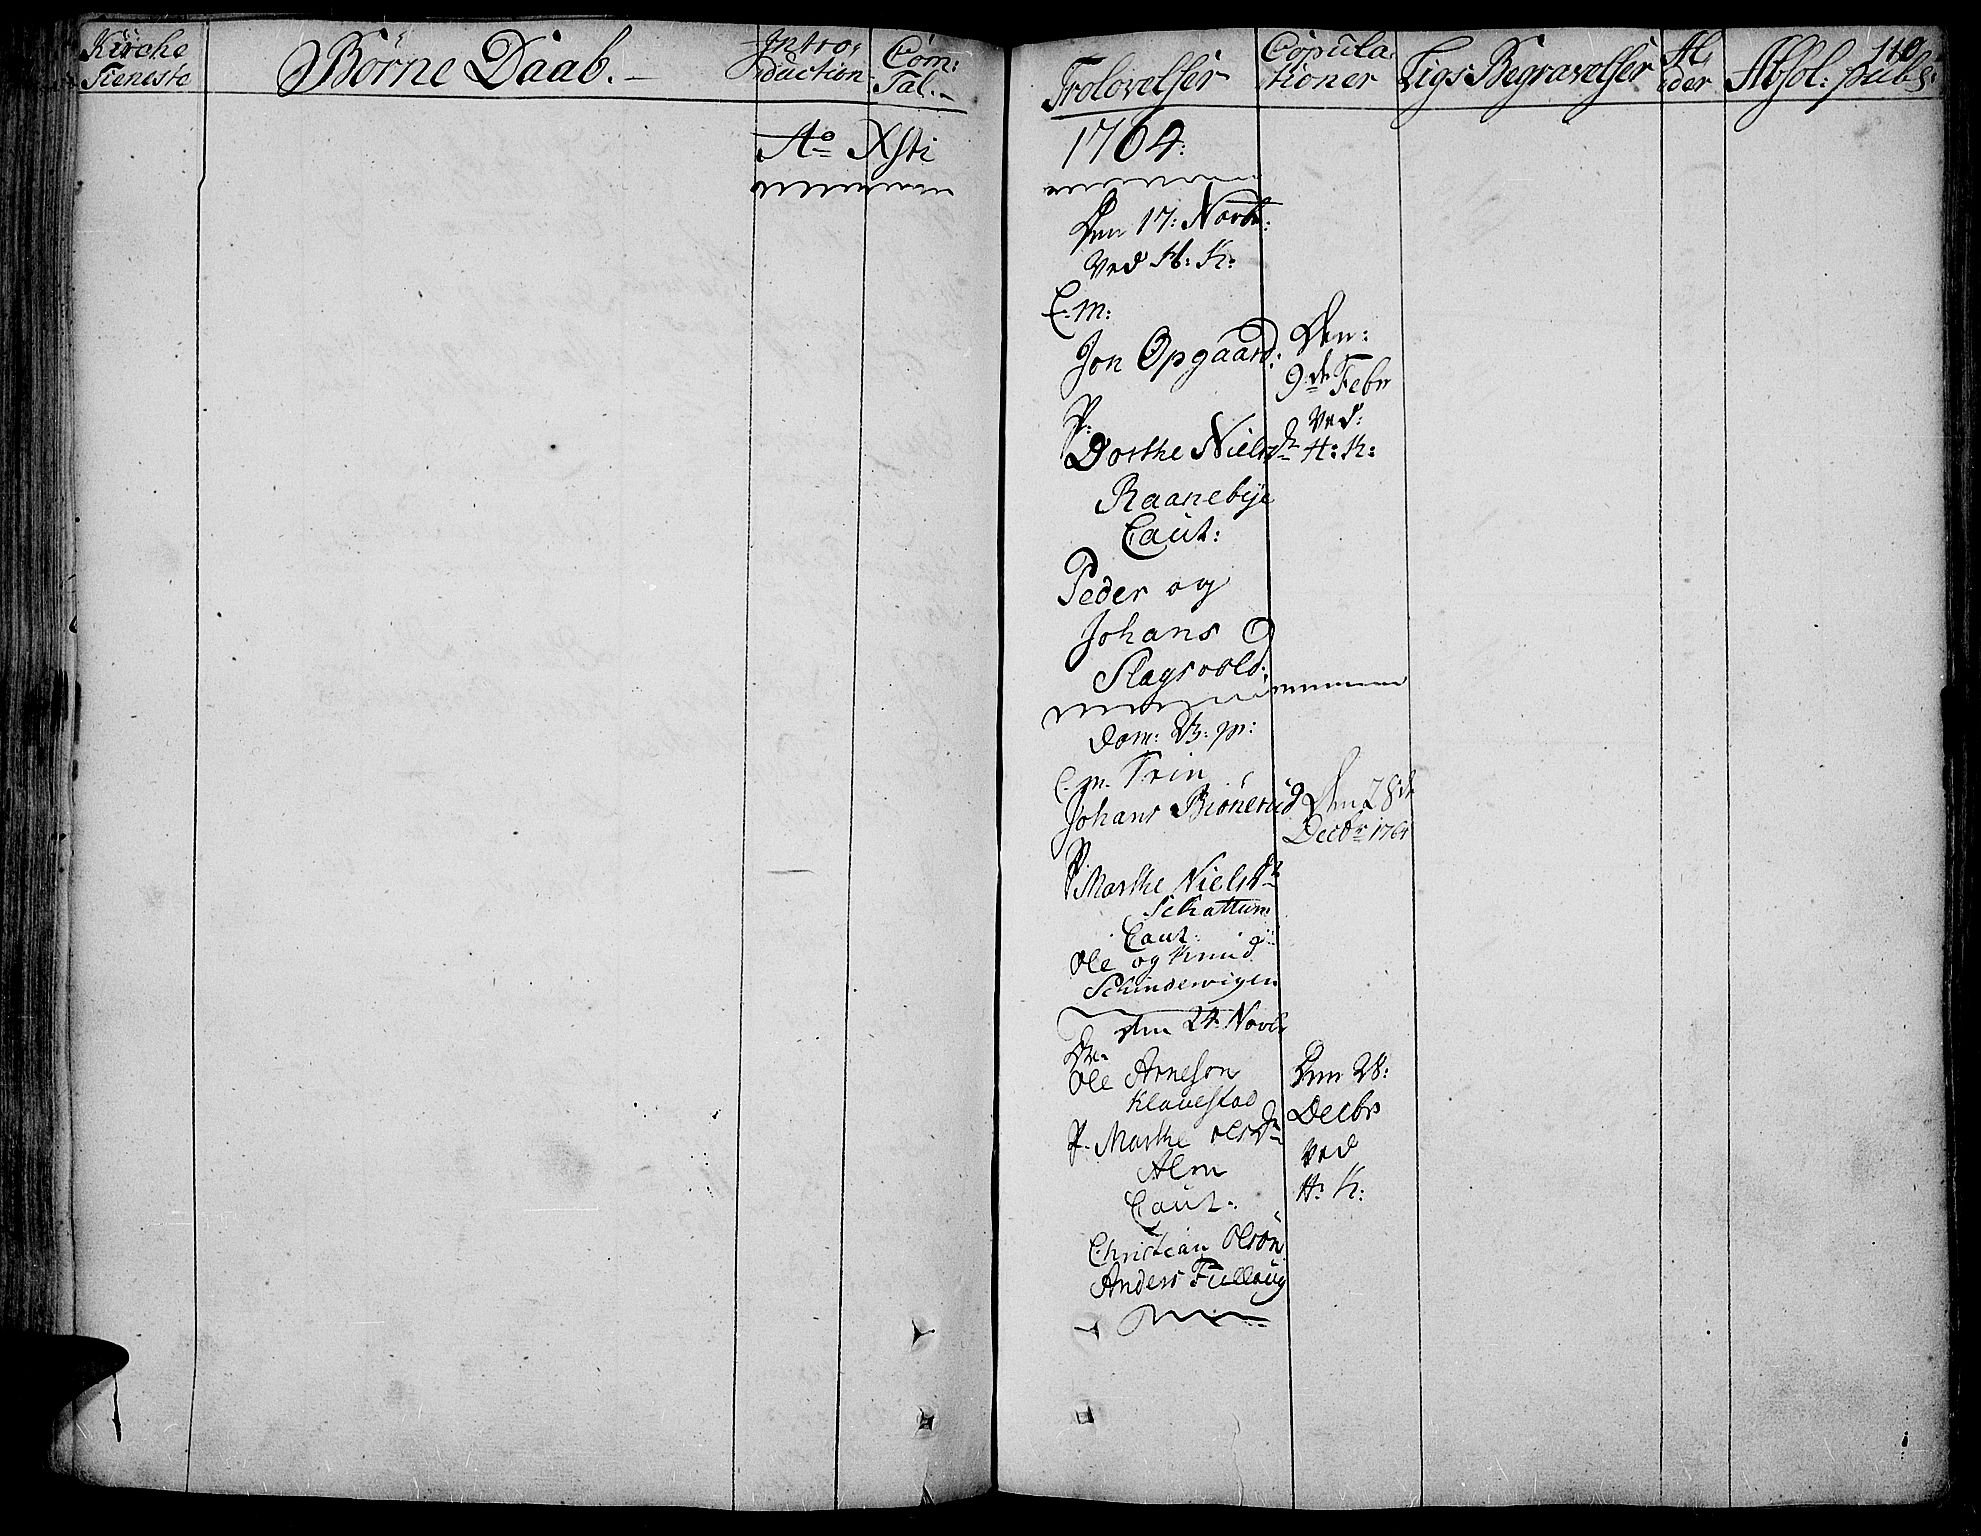 Kirche
Tieneste
Börne Daab.
Intro,
duction
Com:
Tal.
Trolovelser
Copula
tioner
Ligs Begravelser
Al,
der
Absol: publ:
110
Ao Xsti
1764.
Den 17: Novbr:
Ved H: K:
C. m:
Jon Opgaard:
P:
Dorthe Nielsdr
Raanebye
Caut:
Peder og
Johans
Slagsvold:
Den:
9de Febr
Ved:
H: K:
Dom: 23. p:
C. m. Trin
Johans Biönerud
P.
Marthe Nielsdr
Schattum
Caut:
Ole og Knud
Schindervigen
Den 28de
Decbr 1764
Den 24. Novbr
Ole Arneson
Klavestad
P. Marthe Olsdr
Alm
Caut:
Christian Olsön
Anders Fulloug
Den 28:
Decbr
Ved
H: K: